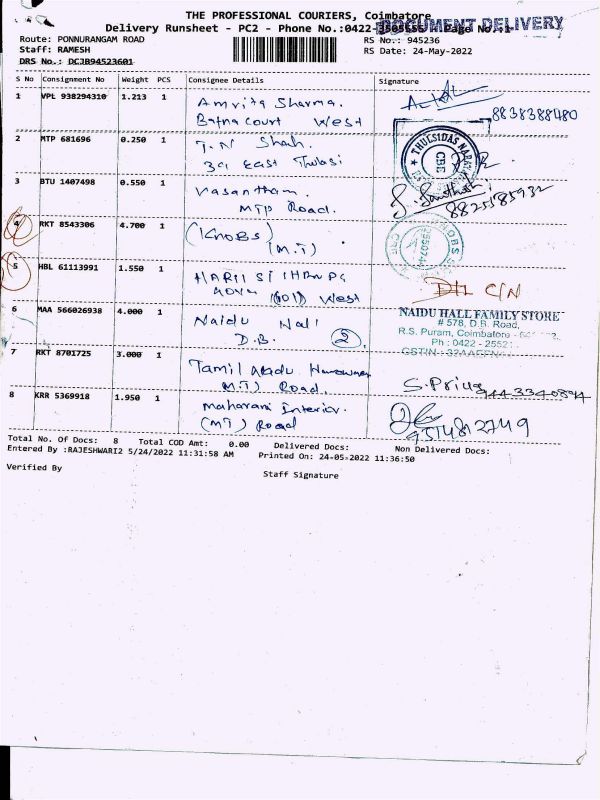 THE PROFESSIONAL COURIERS, Coimbatore
Delivery Runsheet - PC2 - Phone No.:0422-3505555 - Page No.:1
DOCUMENT DELIVERY
Route: PONNURANGAM ROAD
RS No.: 945236
Staff: RAMESH
RS Date: 24-May-2022
DRS No.: DCJB94523601
S No Consignment No Weight PCS Consignee Details Signature
1 VPL 938294310 1.213 1 Amrita Sharma.
Bafna Court West
8838388480
2 MTP 681696 0.250 1 T.N Shah.
39 East Thulasi
THULSIDAS
CBE
3 BTU 1407498 0.550 1 Vasantham.
MTP Road.
8825185932
4 RKT 8543306 4.700 1 (KNOBS)
(M.T)
5 HBL 61113991 1.550 1
(601) West
DTL C/N
6 MAA 566026938 4.000 1 Naidu Hall
D.B. 2
NAIDU HALL FAMILY STORE
# 578, D.B. Road,
R.S. Puram, Coimbatore -
Ph : 0422 - 2552
GSTIN :
7 RKT 8701725 3.000 1 Tamil Nadu
M.T) Road.
S.Priya
8 KRR 5369918 1.950 1 Maharani Interior.
(MT) Road
9514812749
Total No. Of Docs: 8 Total COD Amt: 0.00 Delivered Docs: Non Delivered Docs:
Entered By :RAJESHWARI2 5/24/2022 11:31:58 AM Printed On: 24-05-2022 11:36:50
Verified By
Staff Signature